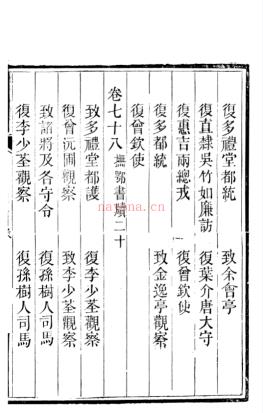 復多禮堂都統　致余會亭
復直隸吳竹如廉訪　復葉介唐大守
復惠吉兩總戎　復曾欽使
復多都統　致金逸亭觀察
復曾欽使
卷七十八　撫鄂書牘二十
致多禮堂都護　復李少荃觀察
復曾沅圃觀察　致李少荃觀察
致諸將及各守令　復孫樹人司馬
復李少荃觀察　復孫樹人司馬
nayona.cn